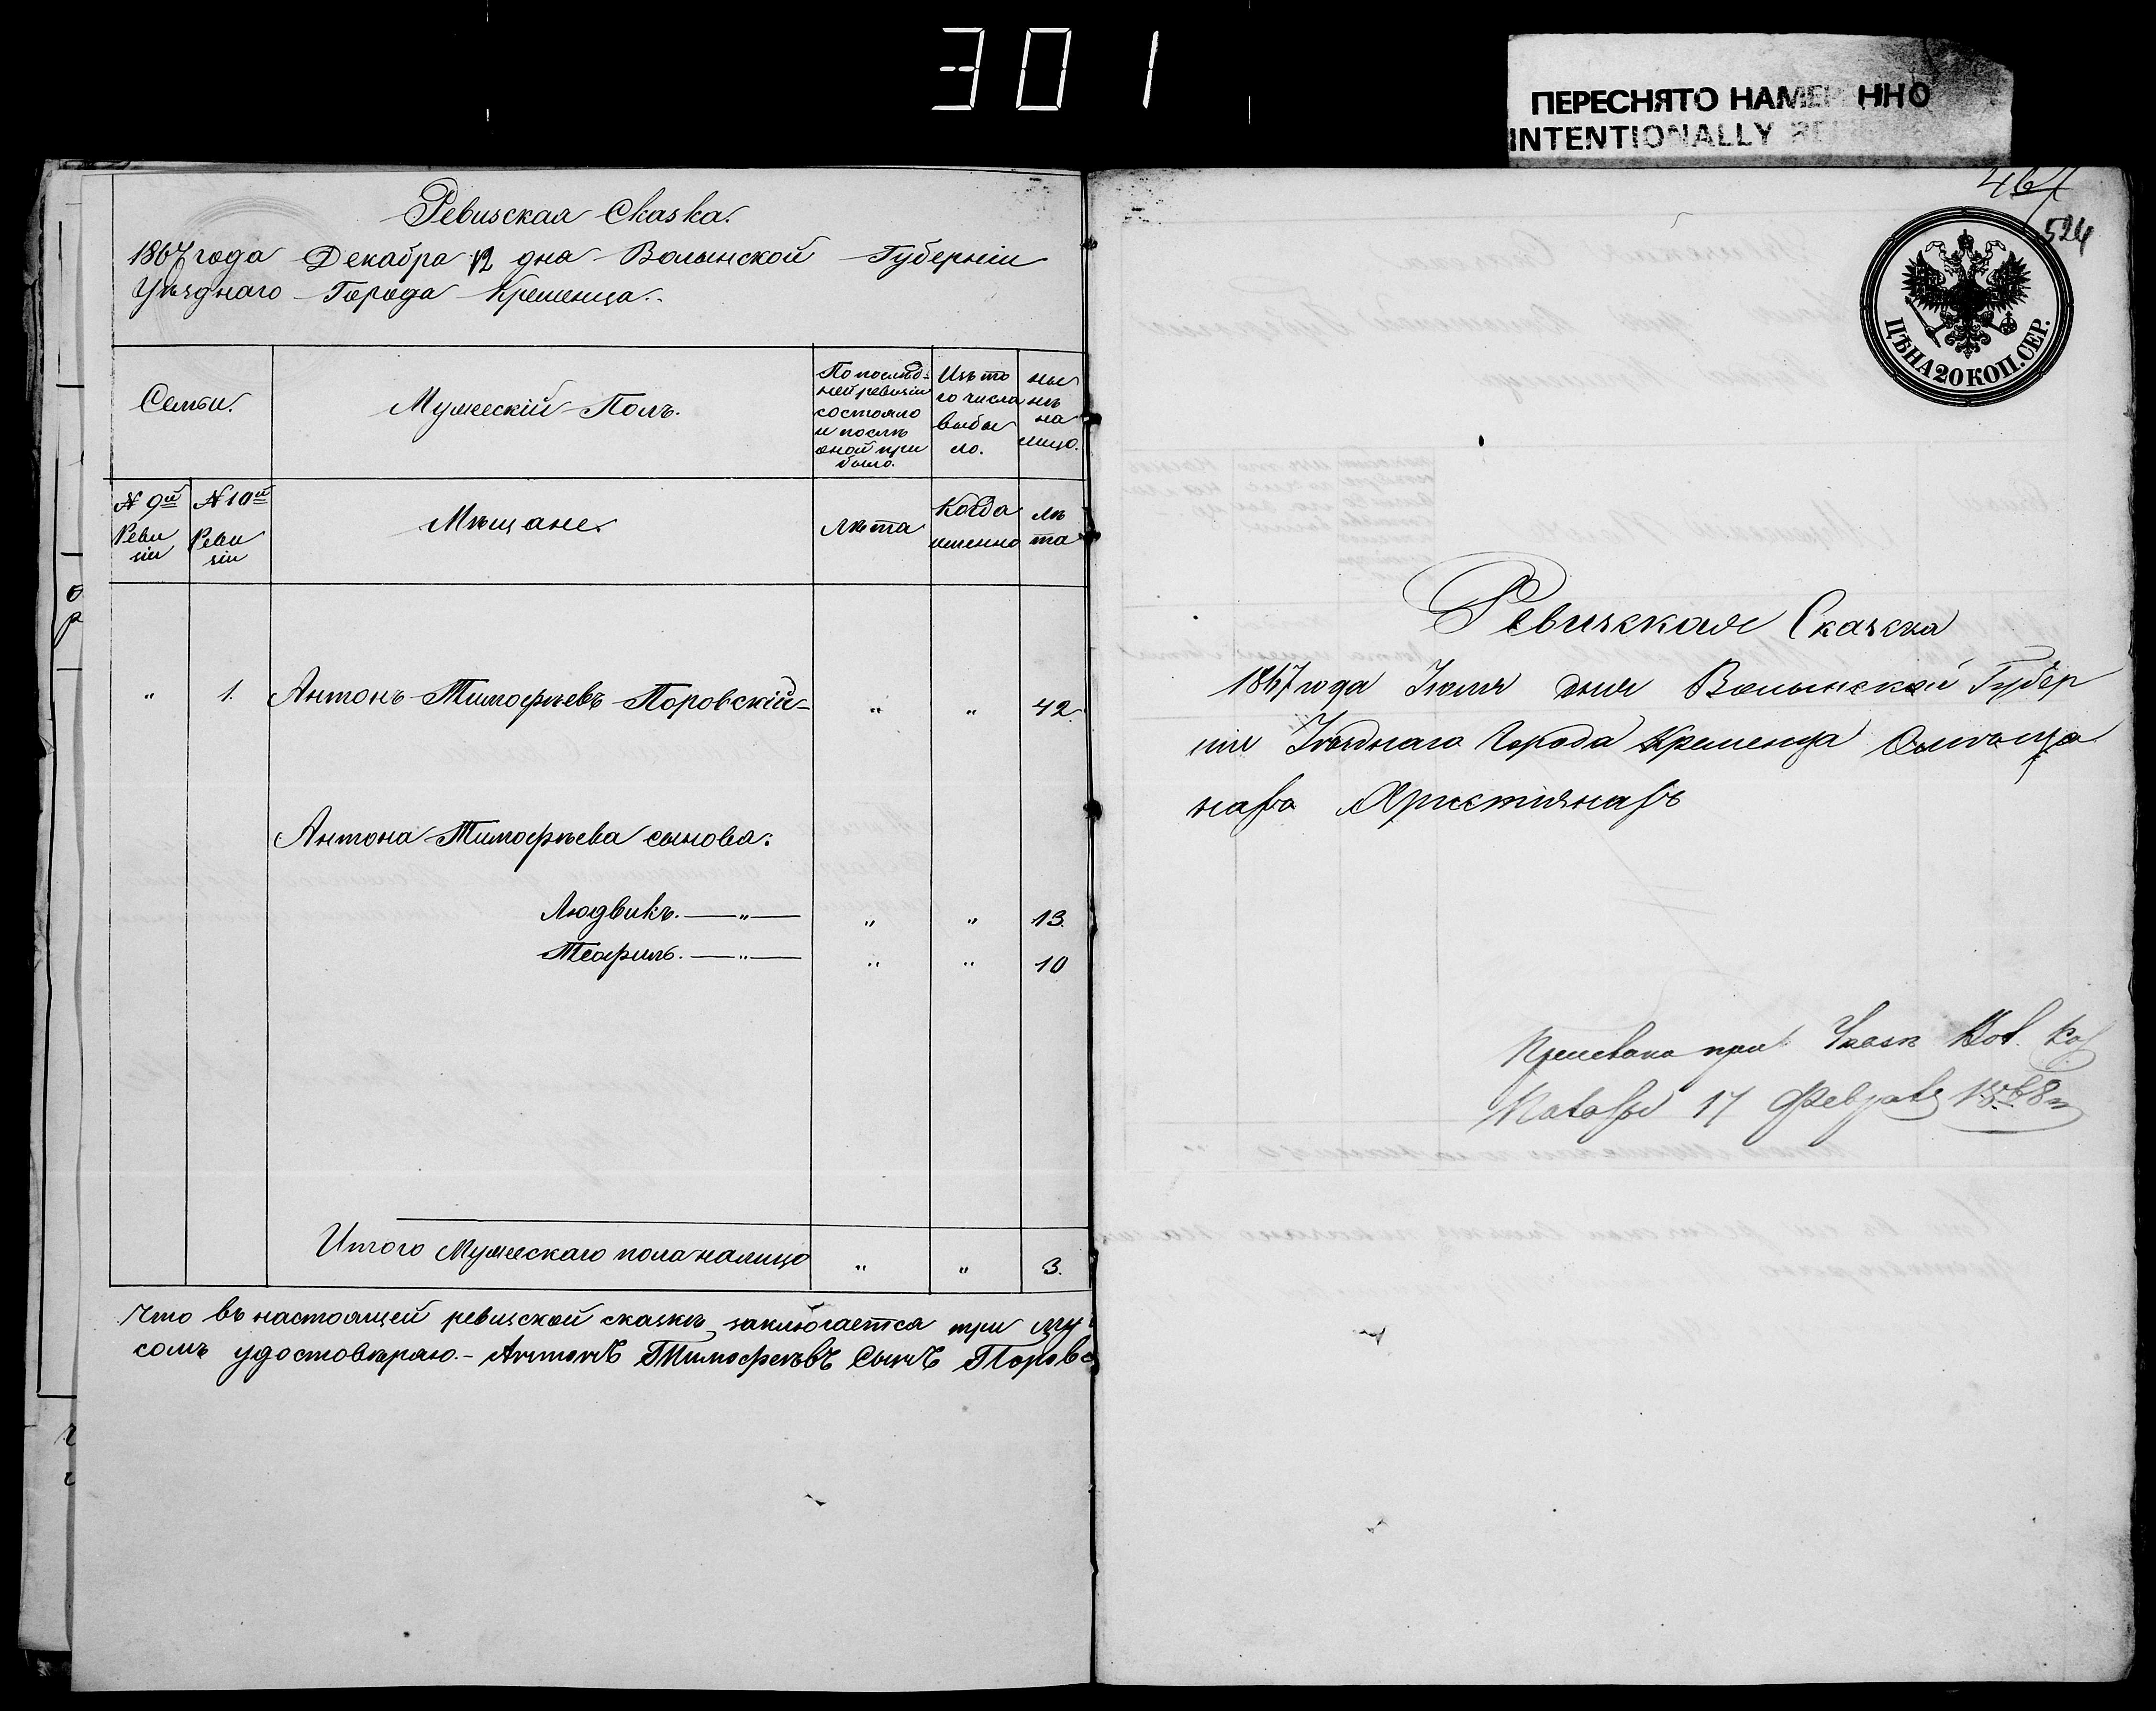 301
ПЕРЕСНЯТО НАМЕР ННО
INTENTIONALLY
Ревизская Сказка.
1867 года Декабря 12 дня Волынской Губерніи
Уѣзднаго Города Кременца.
Семьи.
Мужескій Полъ.
По послѣд-
ней ревизіи
состояло
и послѣ
оной при
было.
Изъ то
го числа
выбы
ло.
Ны
нѣ
на
лицо.
№ 9й
Реви
зіи
№ 10й
Реви
зіи
Мѣщане.
Лѣта
Когда
именно
Лѣ
та
„ 1. Антонъ Тимофѣевъ Поровскій „ „ 42
Антона Тимофѣева сынова:
Людвикъ. —„— „ „ 13.
Теофилъ. —„— „ „ 10
Итого Мужескаго пола налицо „ „ 3.
Что въ настоящей ревизской сказкѣ заключается три му
сомъ удостовѣряю.- Антонъ Тимофеевъ Сынъ Поровс
467
524
ЦѢНА 20 КОП. СЕР.
Ревизская Сказка
1867 года Іюля дня Волынской Губер
ніи Уѣзднаго Города Кременца О мѣща
нахъ Христіянахъ
при Указѣ
17 Февраля 1868 г